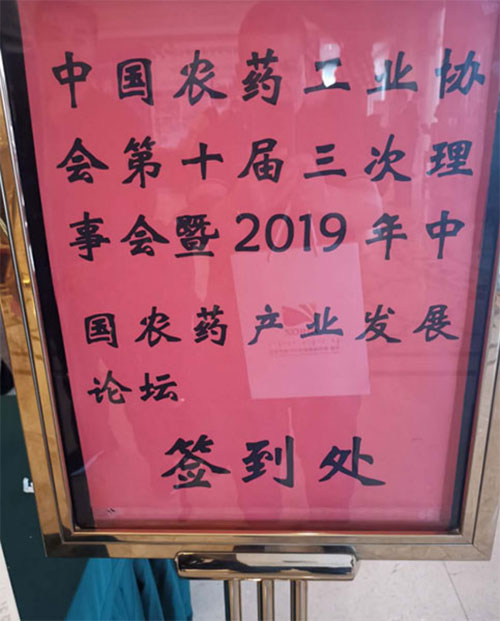 中国农药工业协
会第十届三次理
事会暨2019年中
国农药产业发展
论坛
签到处